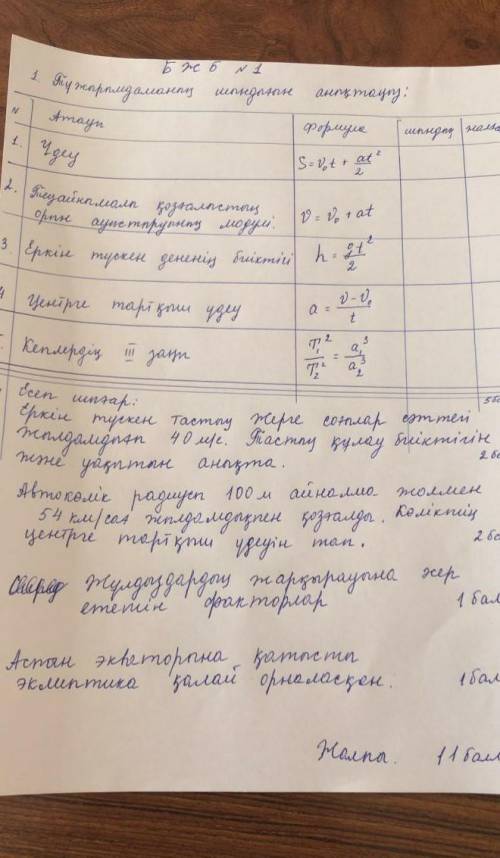 БЖБ №1
1. Тұжырымдаманың шындығын анықтаңыз:
№ Атауы Формула шындық жалға
1. Үдеу S = v₀t + at²/2
2. Теңайнымалы қозғалыстың
орын ауыстыруының модулі. v = v₀ + at
3. Еркін түскен дененің биіктігі h = gt²/2
4 Центрге тартқыш үдеу a = v - v₀/t
Кеплердің III заңы T₁²/T₂² = a₁³/a₂³
Есеп шығар: 5б
Еркін түскен тастың жерге соғылар сәттегі
жылдамдығы 40 м/с. Тастың құлау биіктігін
және уақытын анықта. 2 ба
Автокөлік радиусы 100 м айналма жолмен
54 км/сағ жылдамдықпен қозғалды. Көліктің
центрге тартқыш үдеуін тап. 2 ба
Жұлдыздардың жарқырауына әсер
ететін факторлар 1 бал
Аспан экваторына қатысты
эклиптика қалай орналасқан. 1 бал
Жалпы. 11 балл